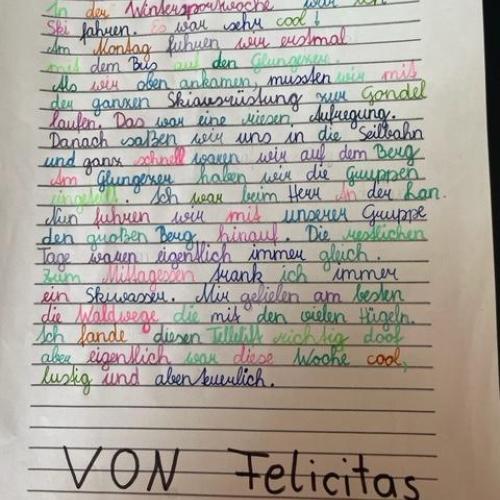 In der Wintersportwoche war ich
Ski fahren. Es war sehr cool!
Am Montag fuhren wir erstmal
mit dem Bus auf den Glungezer.
Als wir oben ankamen, mussten wir mit
der ganzen Skiausrüstung zur Gondel
laufen. Das war eine riesen Aufregung.
Danach saßen wir uns in die Seilbahn
und ganz schnell waren wir auf dem Berg
Am Glungezer haben wir die Gruppen
eingeteilt. Ich war beim Herr In der Lan.
Nun fuhren wir mit unserer Gruppe
den großen Berg hinauf. Die restlichen
Tage waren eigentlich immer gleich.
Zum Mittagessen trank ich immer
ein Skiwasser. Mir gefielen am besten
die Waldwege die mit den vielen Hügeln.
Ich fande diesen Tellelift richtig doof
aber eigentlich war diese Woche cool,
lustig und abenteuerlich.
VON Felicitas